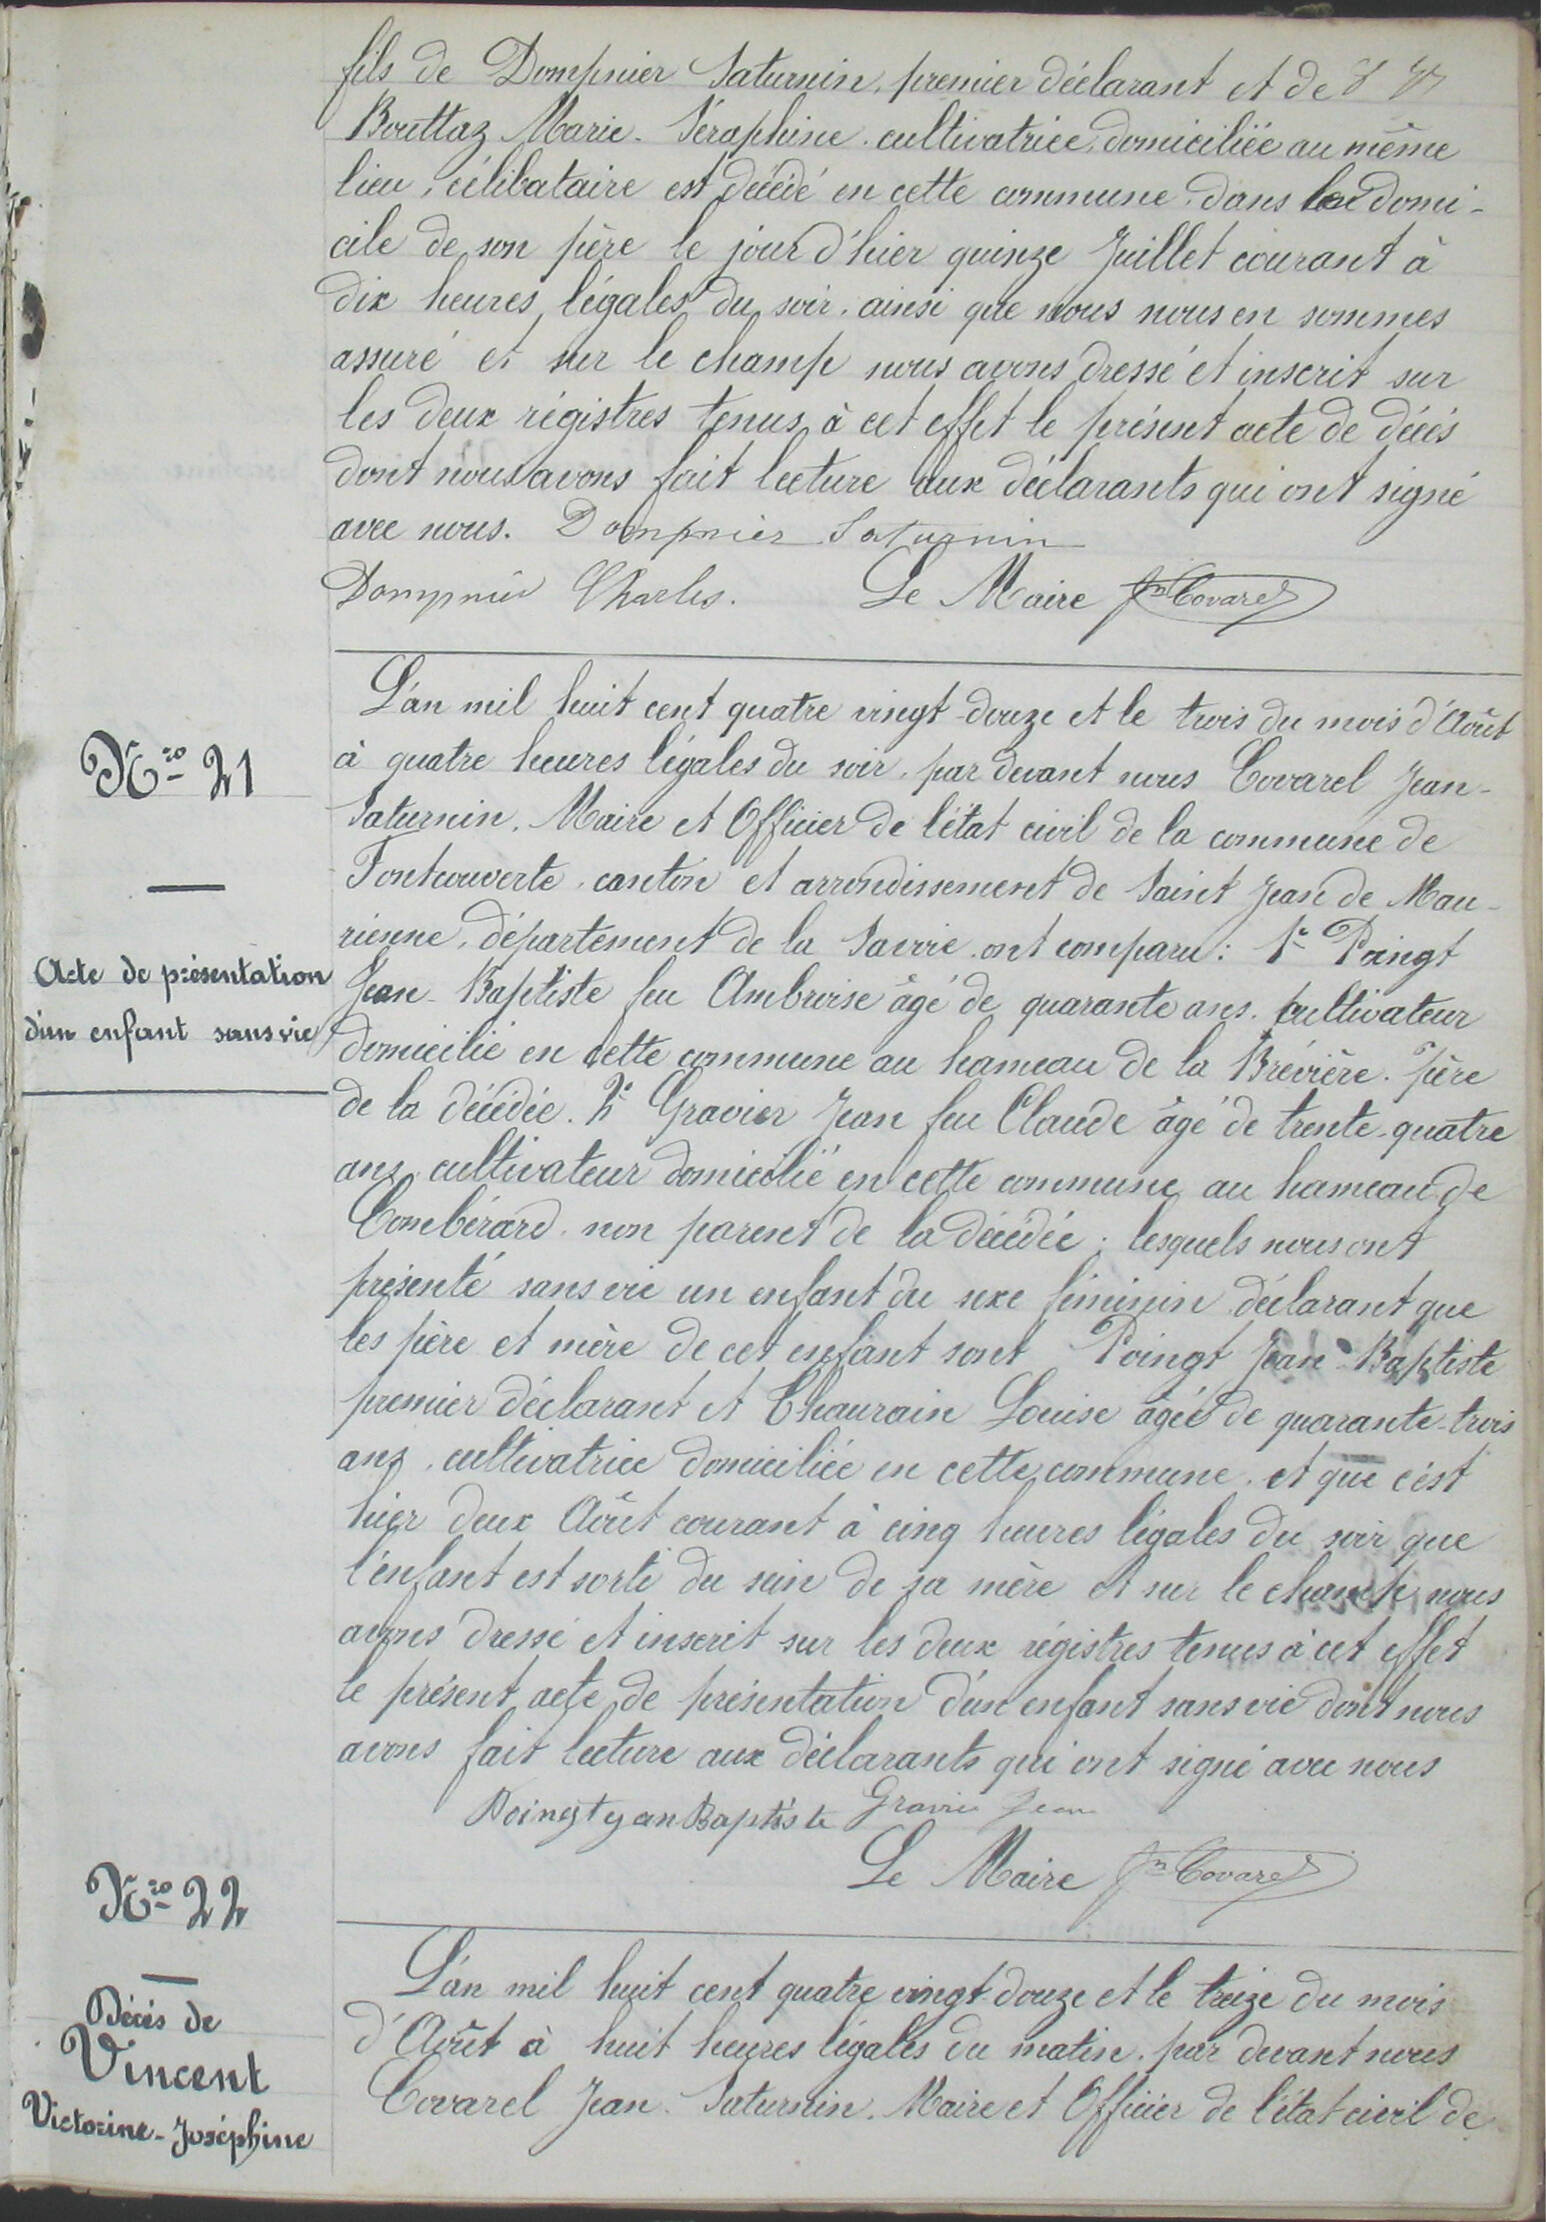 fils de Dompnier Saturnin, premier déclarant et de
Bouttaz Marie-Séraphine, cultivatrice, domiciliée au même
lieu, célibataire est décédé en cette commune, dans le domi-
cile de son père le jour d'hier quinze Juillet courant à
dix heures légales du soir, ainsi que nous nous en sommes
assuré et sur le champ nous avons dressé et inscrit sur
les deux régistres tenus à cet effet le présent acte de décès
dont nous avons fait lecture aux déclarants qui ont signé
avec nous. Dompnier Saturnin
Dompnier Charles. Le Maire Jn Covarel
N.ro 21
Acte de présentation
d'un enfant sans vie
L'an mil huit cent quatre vingt-douze et le trois du mois d'Août
à quatre heures légales du soir, par devant nous Covarel Jean-
Saturnin, Maire et Officier de l'état civil de la commune de
Fontcouverte, canton et arrondissement de Saint Jean de Mau-
rienne, département de la Savoie ont comparu: 1° Poingt
Jean-Baptiste feu Ambroise âgé de quarante ans, cultivateur
domicilié en cette commune au hameau de la Brévière, père
de la décédée. 2° Gravier Jean feu Claude âgé de trente-quatre
ans, cultivateur domicilié en cette commune au hameau de
Combérard, non parent de la décédée; lesquels nous ont
présenté sans vie un enfant du sexe féminin déclarant que
les père et mère de cet enfant sont Poingt Jean-Baptiste
premier déclarant et Chaurain Louise âgée de quarante-trois
ans, cultivatrice domiciliée en cette commune, et que c'est
hier deux Août courant à cinq heures légales du soir que
l'enfant est sorti du sein de sa mère et sur le champ nous
avons dressé et inscrit sur les deux régistres tenus à cet effet
le présent acte de présentation d'un enfant sans vie dont nous
avons fait lecture aux déclarants qui ont signé avec nous
Poingt Jean Baptiste Gravier Jean
Le Maire Jn Covarel
N.ro 22
Décès de
Vincent
Victorine-Joséphine
L'an mil huit cent quatre vingt-douze et le treize du mois
d'Août à huit heures légales du matin, par devant nous
Covarel Jean-Saturnin, Maire et Officier de l'état civil de